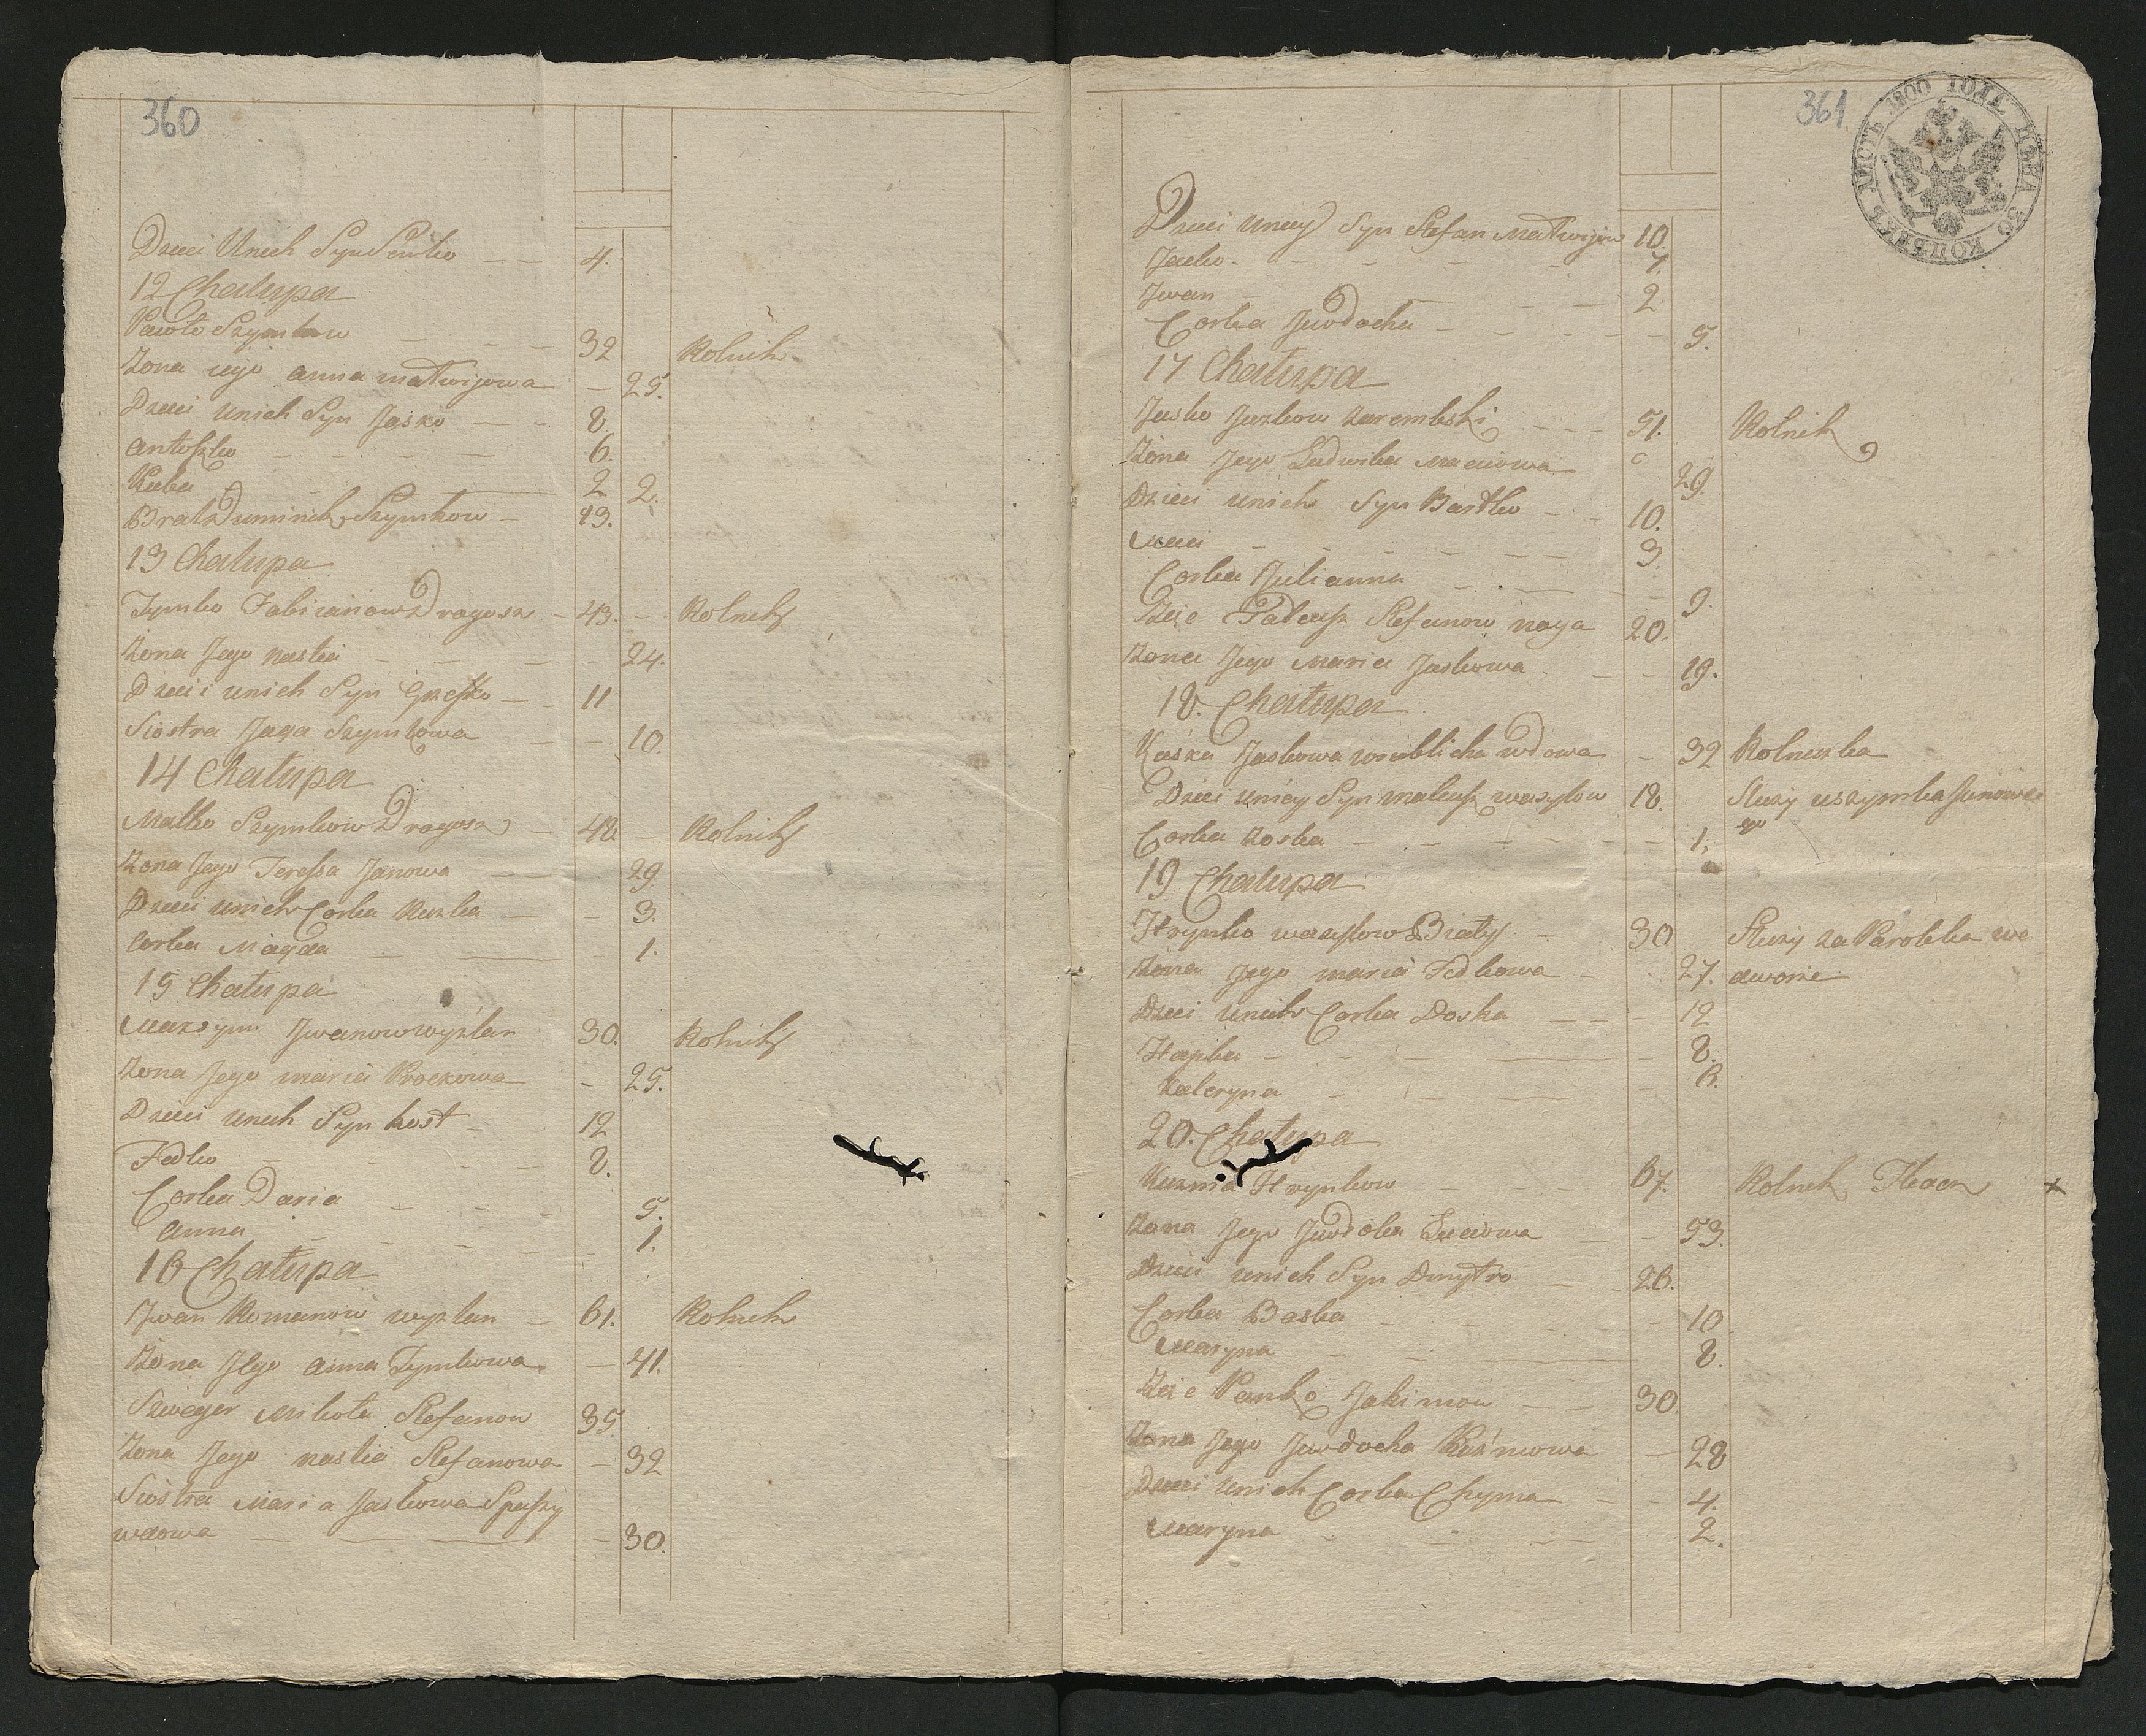 360
Dzieci Unich Syn Senko — — 4.
12 Chałupa
Pawło Szymkow — — — 32 Rolnik
Żona iego anna matwijowa — — 25.
Dzieci unich Syn Jasko — - 8.
Antoszko — — — — 6.
Kuba — — 2 2.
Brat Duminik Szymkow — 13.
13 Chałupa
Tymko Fabicianow Dragosz — 43. — Rolnik
Żona Jego nastia — — — — 24.
Dzieci unich Syn Grzesko — — 11
Siostra Jaga Szymkowa — — 10.
14 Chałupa
Matko Szymkow Dragosz — 48 — Rolnik
Żona Jego Teressa Janowa — 29.
Dzieci unich Corka Ruzka — — 3.
Corka Magda — — 1.
15 Chałupa
Maxym Jwanow wyżlan 30. Rolnik
Żona Jego maria Prockowa — 25.
Dzieci unich Syn kost — 12
Fedko — — — — 8.
Corka Daria — — — 5.
Anna — — — — 1.
16 Chałupa
Jwan Romanow wyzlan — 61. Rolnik
Żona Jego anna Tymkowa — 41.
Szwagier Mikoła Stefanow 35.
Żona Jego nastia Stefanowa — 32
Siostra Maria Jaskowa
wdowa — — — 30.
361
ЛИСТЪ 1800 ГОДА ЦѢНА 30 КОПѢЕКЪ
Dzieci uniey Syn Stefan Matwijow 10.
Jacko — — — — 7.
Jwan — — — — 2
Corka Jewdocha — — — — 5.
17 Chałupa
Jasko Juzkow zarembski — — 51. Rolnik
Żona Jego Ludwika Maciowa 29.
Dzieci unich Syn Bartko — — 10.
Maci — — — — 3.
Corka Julianna — — — 9.
Zięc Tadeusz Stefanow 20.
Żona Jego Maria Jaskowa — — 19.
18. Chałupa
Kaska Jaskowa wrublicha wdowa — 32 Rolniczka
Dzieci uniey Syn mateusz wasylow 18. Służy uszymka
Corka zoska — — — — 1.
19 Chałupa
Hrynko wasylow Biały — 30 Służy za Parobka we
Żona Jego maria Fedkowa — 27. dworze
Dzieci unich Corka Doska — — 12
Hapka — — — — 8.
Kateryna — — — 6.
20. Chałupa
Kuzma Hrynkow — — — 67. Rolnik Tkacz x
Żona Jego Jewdoka — — 53.
Dzieci unich Syn Dmytro — 26.
Corka Baska — — — — 10
Maryna — — — 8.
Zięc Pańko Jakimow — — 30.
Żona Jego Jewdocha Kuźmowa — 28
Dzieci Unich Corka Chyma — — 4.
Maryna — — — 2.